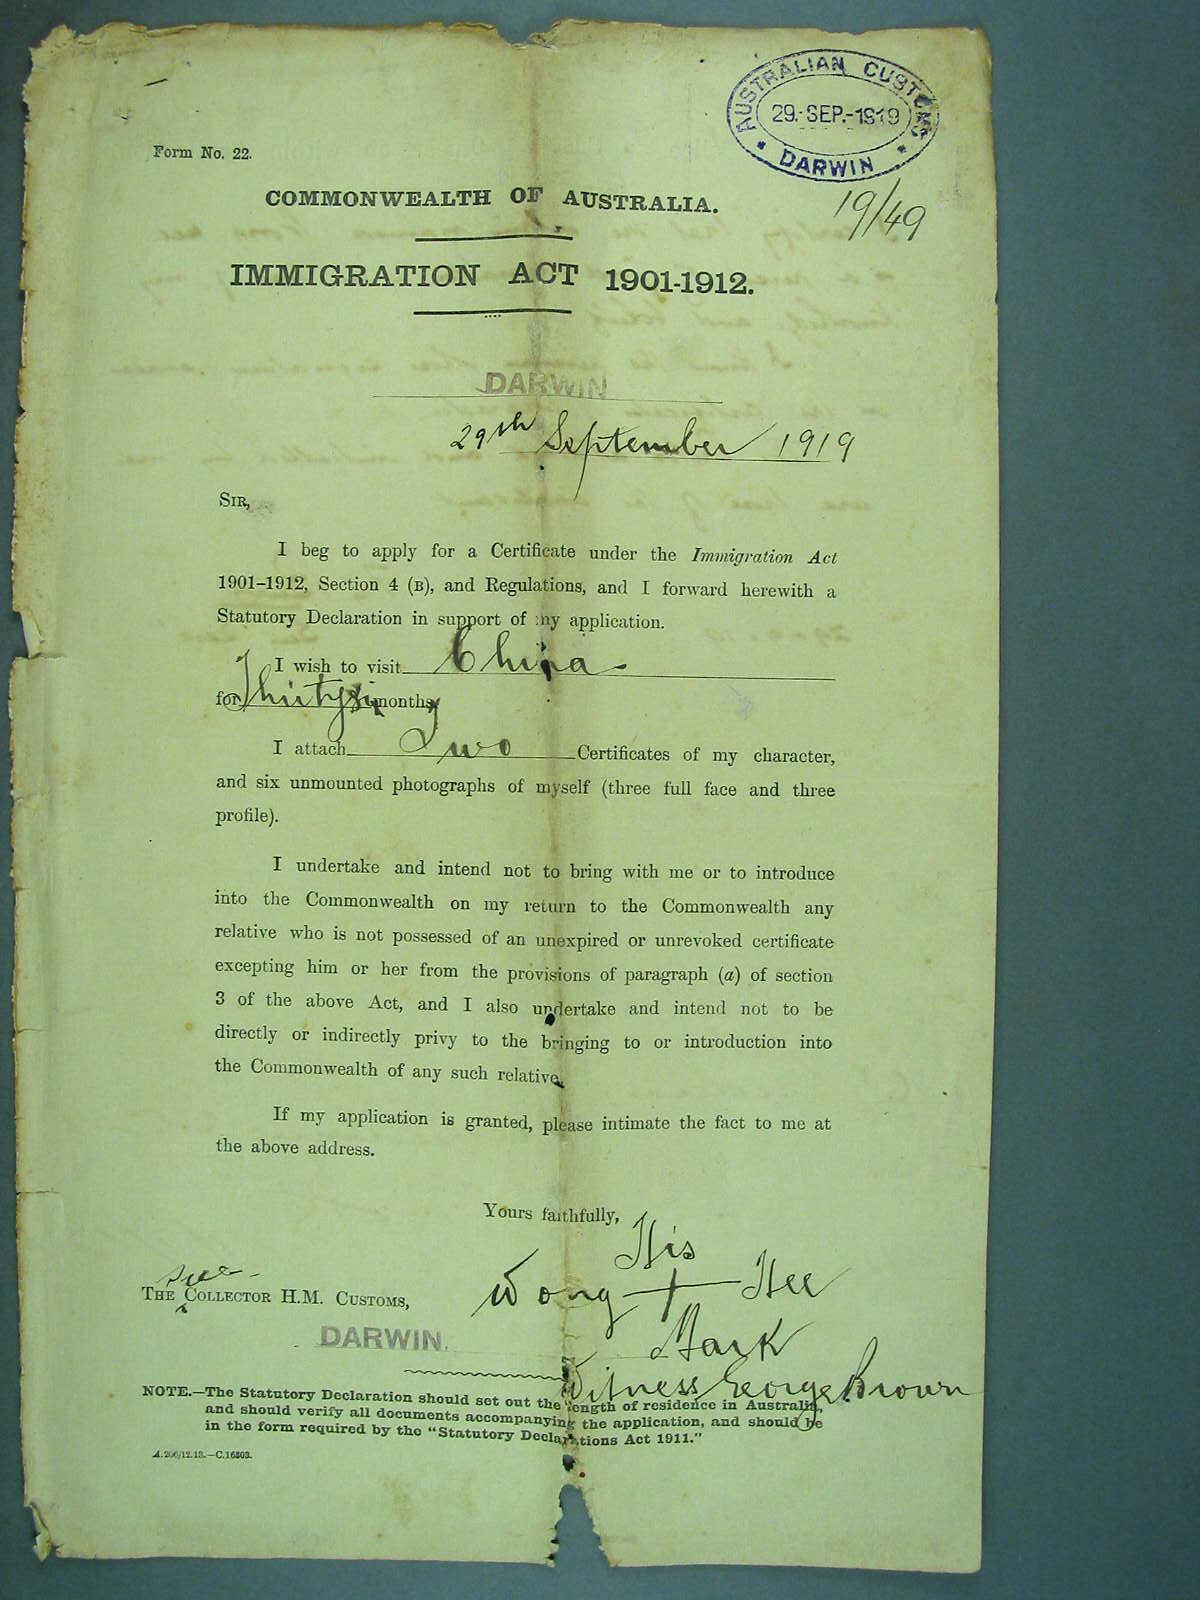 AUSTRALIAN CUSTOMS
29.-SEP.-1919
DARWIN
19/49
Form No. 22.
COMMONWEALTH OF AUSTRALIA.
IMMIGRATION ACT 1901-1912.
DARWIN
29th September 1919
SIR,
I beg to apply for a Certificate under the Immigration Act
1901–1912, Section 4 (B), and Regulations, and I forward herewith a
Statutory Declaration in support of my application.
I wish to visit China
for Thirtysix months
I attach Two Certificates of my character,
and six unmounted photographs of myself (three full face and three
profile).
I undertake and intend not to bring with me or to introduce
into the Commonwealth on my return to the Commonwealth any
relative who is not possessed of an unexpired or unrevoked certificate
excepting him or her from the provisions of paragraph (a) of section
3 of the above Act, and I also undertake and intend not to be
directly or indirectly privy to the bringing to or introduction into
the Commonwealth of any such relative.
If my application is granted, please intimate the fact to me at
the above address.
Yours faithfully,
His
Wong + Hee
Mark
Witness George Brown
THE COLLECTOR H.M. CUSTOMS,
DARWIN.
NOTE.—The Statutory Declaration should set out the length of residence in Australia,
and should verify all documents accompanying the application, and should be
in the form required by the "Statutory Declarations Act 1911."
A.200/12.13.—C.16803.